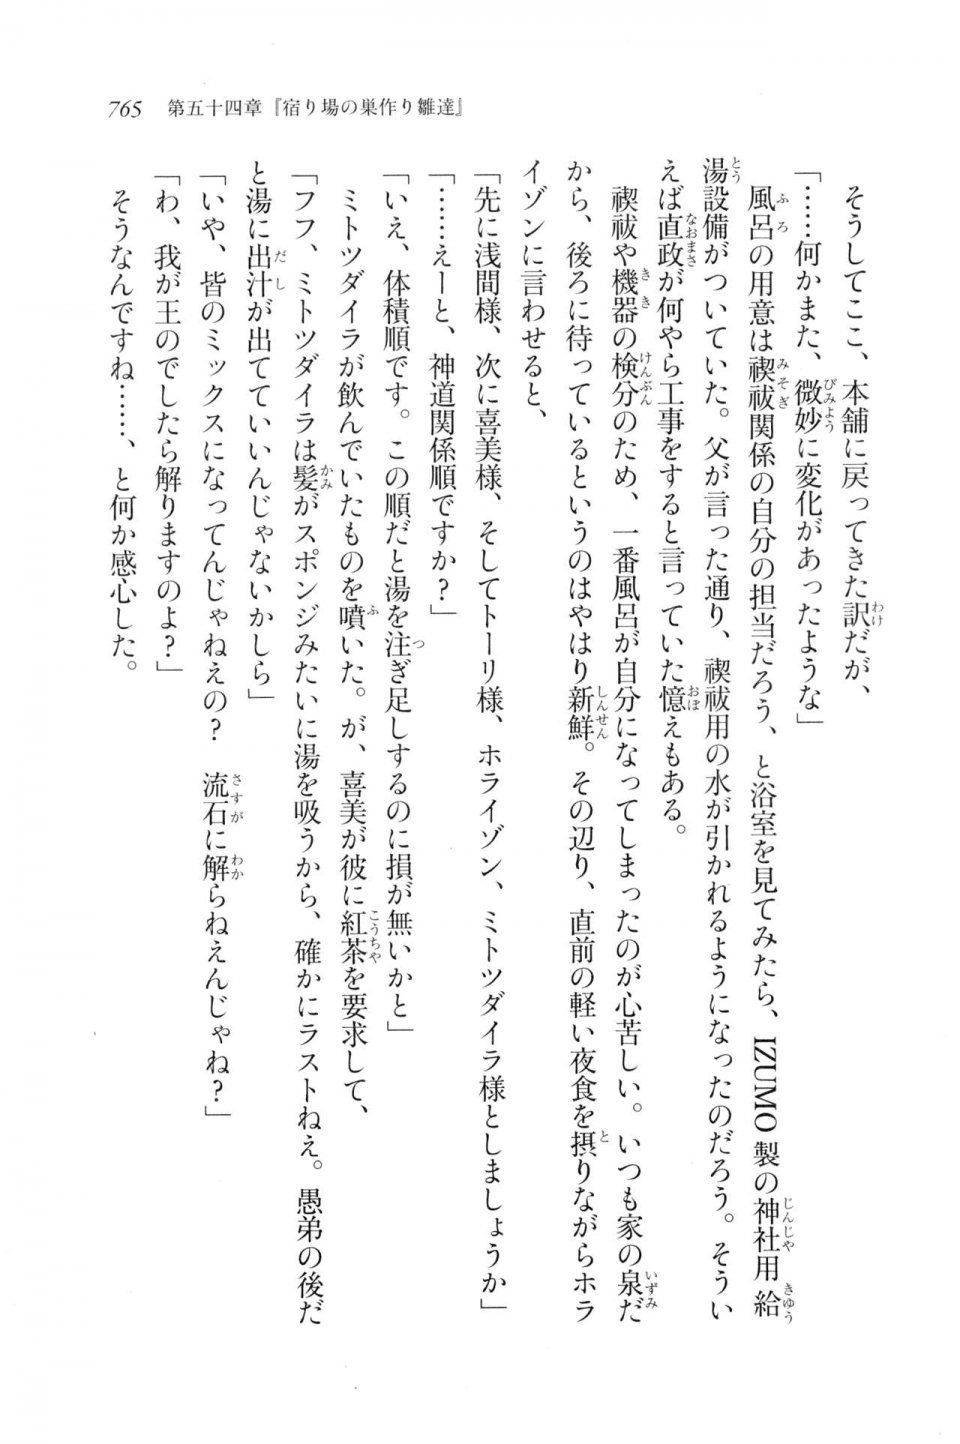 765　第五十四章『宿り場の巣作り雛達』
　そうしてここ、本舗に戻ってきた訳だが、
「……何かまた、微妙に変化があったような」
　風呂の用意は禊祓関係の自分の担当だろう、と浴室を見てみたら、IZUMO製の神社用給
湯設備がついていた。父が言った通り、禊祓用の水が引かれるようになったのだろう。そうい
えば直政が何やら工事をすると言っていた憶えもある。
　禊祓や機器の検分のため、一番風呂が自分になってしまったのが心苦しい。いつも家の泉だ
から、後ろに待っているというのはやはり新鮮。その辺り、直前の軽い夜食を摂りながらホラ
イゾンに言わせると、
「先に浅間様、次に喜美様、そしてトーリ様、ホライゾン、ミトツダイラ様としましょうか」
「……えーと、神道関係順ですか？」
「いえ、体積順です。この順だと湯を注ぎ足しするのに損が無いかと」
　ミトツダイラが飲んでいたものを噴いた。が、喜美が彼に紅茶を要求して、
「フフ、ミトツダイラは髪がスポンジみたいに湯を吸うから、確かにラストねえ。愚弟の後だ
と湯に出汁が出てていいんじゃないかしら」
「いや、皆のミックスになってんじゃねえの？　流石に解らねえんじゃね？」
「わ、我が王のでしたら解りますのよ？」
　そうなんですね……、と何か感心した。